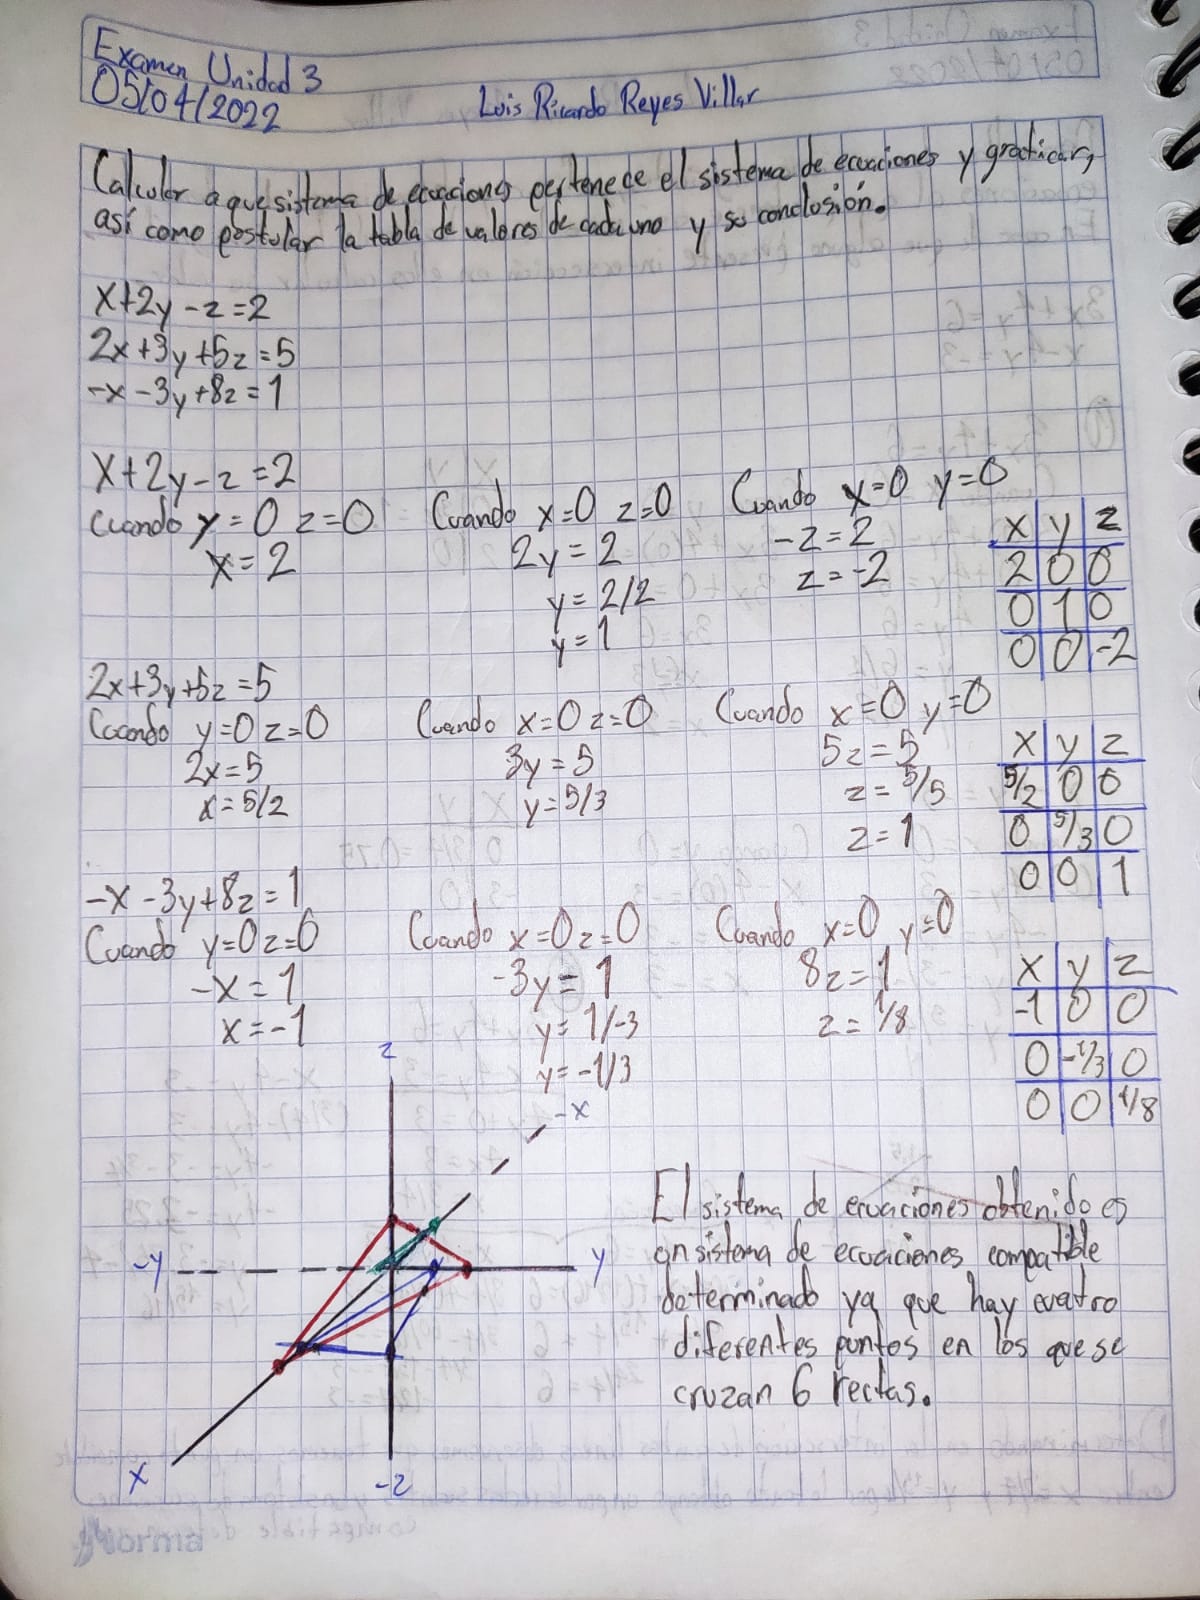 Examen Unidad 3
05/04/2022
Luis Ricardo Reyes Villar
Calcular a que sistema de ecuaciones pertenece el sistema de ecuaciones y graficar,
así como postular la tabla de valores de cada uno y su conclusión.
x+2y-z=2
2x+3y+5z=5
-x-3y+8z=1
x+2y-z=2
Cuando y=0 z=0
x=2
Cuando x=0 z=0
2y=2
y=2/2
y=1
Cuando x=0 y=0
-z=2
z=-2
x y z
2 0 0
0 1 0
0 0 -2
2x+3y+5z=5
Cuando y=0 z=0
2x=5
x=5/2
Cuando x=0 z=0
3y=5
y=5/3
Cuando x=0 y=0
5z=5
z=5/5
z=1
x y z
5/2 0 0
0 5/3 0
0 0 1
-x-3y+8z=1
Cuando y=0 z=0
-x=1
x=-1
Cuando x=0 z=0
-3y=1
y=1/-3
y=-1/3
Cuando x=0 y=0
8z=1
z=1/8
x y z
-1 0 0
0 -1/3 0
0 0 1/8
z
-x
-y
y
x
-z
El sistema de ecuaciones obtenido es
un sistema de ecuaciones compatible
determinado ya que hay cuatro
diferentes puntos en los que se
cruzan 6 rectas.
Norma